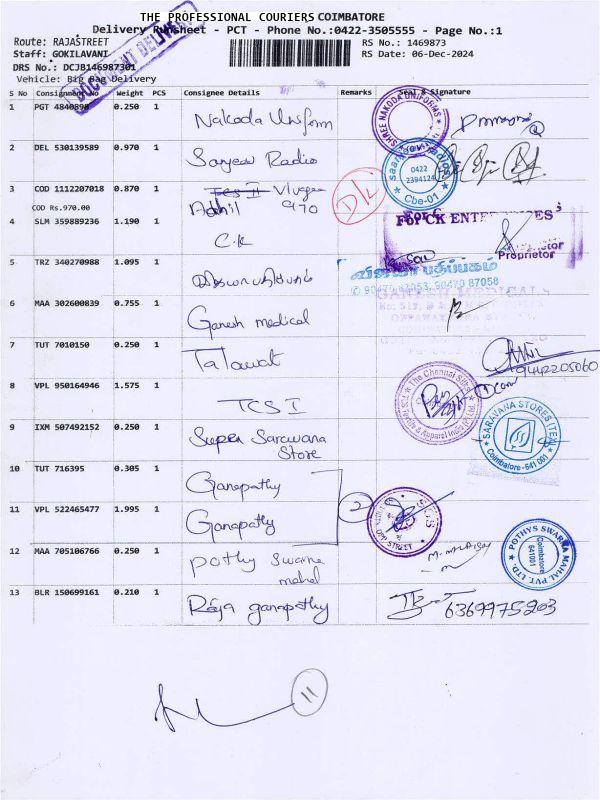 THE PROFESSIONAL COURIERS COIMBATORE
Delivery Runsheet - PCT - Phone No.:0422-3505555 - Page No.:1
Route: RAJASTREET RS No.: 1469873
Staff: GOKILAVANI RS Date: 06-Dec-2024
DRS No.: DCJB146987301
Vehicle: Big Bag Delivery
DOCUMENT DELIVERY
S No Consignment No Weight PCS Consignee Details Remarks Seal & Signature
1 PGT 4840898 0.250 1 Nakoda Uniform
SHREE NAKODA UNIFORMS
2 DEL 530139589 0.970 1 Sanjeev Radio
0422 2394124
Cbe-01
3 COD 1112207018 0.870 1 TCS II
COD Rs.970.00 970
D/L
4 SLM 359889236 1.190 1 C.K
For CK ENTERPRISES
Proprietor
5 TRZ 340270988 1.095 1 விஜயா பதிப்பகம்
விஜயா பதிப்பகம்
90470 87053, 90470 87058
6 MAA 302600839 0.755 1 Ganesh medical
GANESH MEDICALS
7 TUT 7010150 0.250 1 Talawat
9442205060
8 VPL 950164946 1.575 1 TCS I
The Chennai Silks
9 IXM 507492152 0.250 1 Super Sarawana
Store
SARAVANA STORES (TEX)
Coimbatore - 641 001
10 TUT 716395 0.305 1 Ganapathy
11 VPL 522465477 1.995 1 Ganapathy 2
OPP STREET
12 MAA 705106766 0.250 1 pothy swarna
mahal
POTHYS SWARNA MAHAL PVT. LTD.
Coimbatore
641001
13 BLR 150699161 0.210 1 Raja ganapathy 6369975203
11